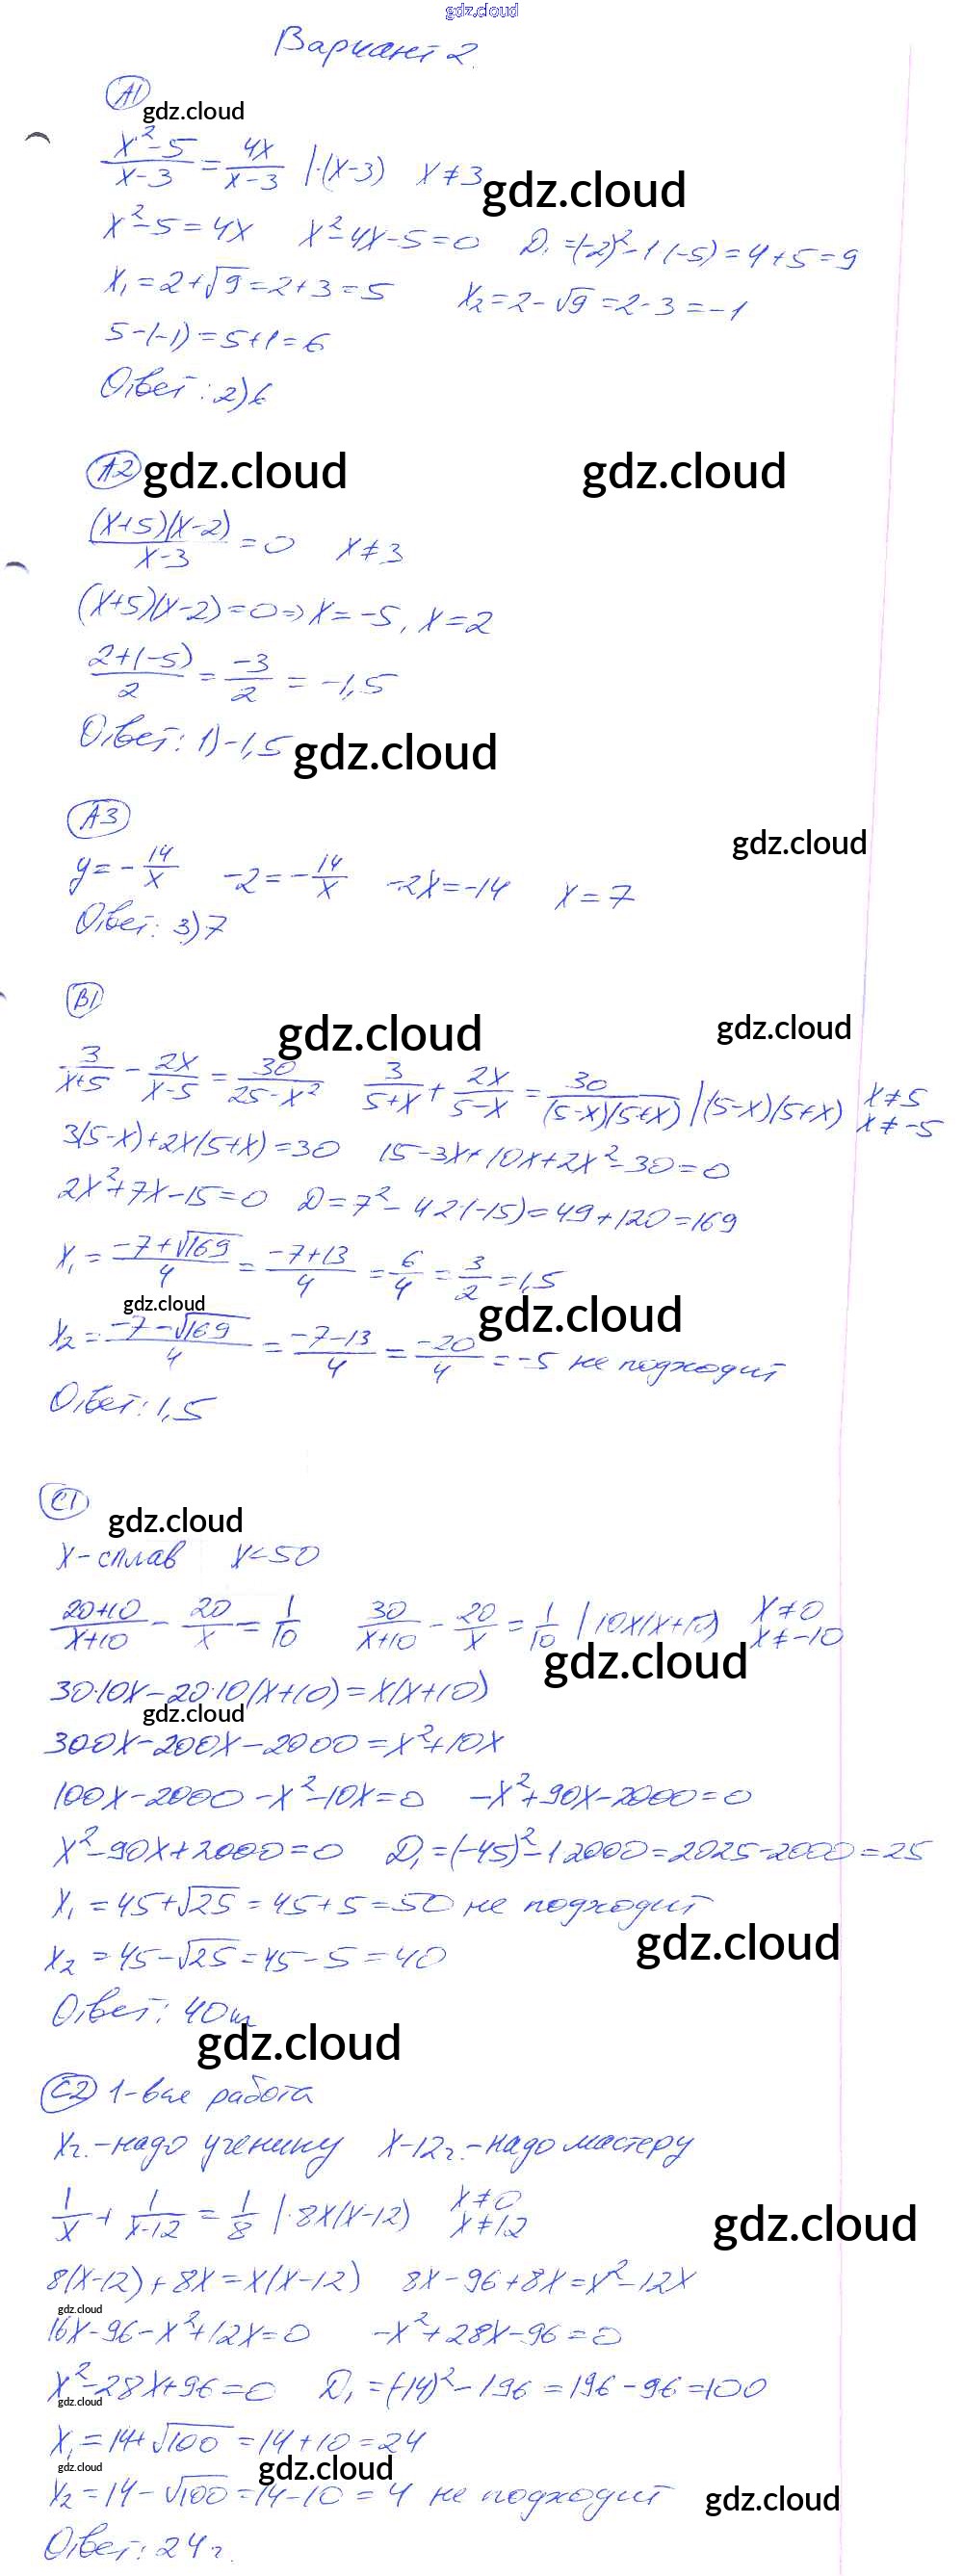 gdz.cloud
Вариант 2.
А1
gdz.cloud
(x²-5)/(x-3) = 4x/(x-3) |·(x-3) x≠3
gdz.cloud
x²-5=4x x²-4x-5=0 D₁=(-2)²-1(-5)=4+5=9
x₁=2+√9=2+3=5 x₂=2-√9=2-3=-1
5-(-1)=5+1=6
Ответ: 2)6
А2 gdz.cloud gdz.cloud
(x+5)(x-2)/(x-3) = 0 x≠3
(x+5)(x-2)=0 => x=-5, x=2
(2+(-5))/2 = -3/2 = -1,5
Ответ: 1)-1,5 gdz.cloud
А3
gdz.cloud
y=-14/x -2=-14/x -2x=-14 x=7
Ответ: 3)7
В1
gdz.cloud gdz.cloud
3/(x+5) - 2x/(x-5) = 30/(25-x²) 3/(5+x) + 2x/(5-x) = 30/((5-x)(5+x)) |(5-x)(5+x) x≠5 x≠-5
3(5-x)+2x(5+x)=30 15-3x+10x+2x²-30=0
2x²+7x-15=0 D=7²-4·2·(-15)=49+120=169
x₁=(-7+√169)/4=(-7+13)/4=6/4=3/2=1,5
gdz.cloud gdz.cloud
x₂=(-7-√169)/4=(-7-13)/4=-20/4=-5 не подходит
Ответ: 1,5
С1
gdz.cloud
x-сплав x<50
(20+10)/(x+10) - 20/x = 1/10 30/(x+10) - 20/x = 1/10 |10x(x+10) x≠0 x≠-10
gdz.cloud
30·10x-20·10(x+10)=x(x+10)
gdz.cloud
300x-200x-2000=x²+10x
100x-2000-x²-10x=0 -x²+90x-2000=0
x²-90x+2000=0 D₁=(-45)²-1·2000=2025-2000=25
x₁=45+√25=45+5=50 не подходит
gdz.cloud
x₂=45-√25=45-5=40
Ответ: 40т
gdz.cloud
С2 1-вся работа
xч.-надо ученику x-12ч.-надо мастеру
1/x + 1/(x-12) = 1/8 |·8x(x-12) x≠0 x≠12
gdz.cloud
8(x-12)+8x=x(x-12) 8x-96+8x=x²-12x
gdz.cloud
16x-96-x²+12x=0 -x²+28x-96=0
x²-28x+96=0 D₁=(-14)²-1·96=196-96=100
gdz.cloud
x₁=14+√100=14+10=24
gdz.cloud gdz.cloud
x₂=14-√100=14-10=4 не подходит
gdz.cloud
Ответ: 24ч.